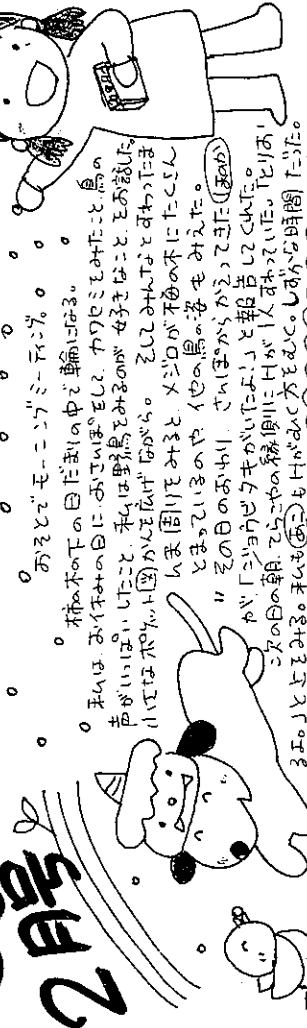 2月号
おそとでモーニングミーティング。
柿の木の下の日だまりの中で輪になる。
私は、お休みの日に、おさんぽをして、カワセミをみたこと、鳥の
声がいっぱいしたこと、私は野鳥をみるのが好きなことをお話した。
小さなポケット図かんを広げながら。そしてみんなとすわったま
んま周りをみると、メジロが梅の木にたくさん
とまっているのや、他の鳥の姿もみえた。
その日のおわり、さんぽからかえってきた
が「ジョウビタキがいたよ!」と報告してくれた。
次の日の朝、てらこやの縁側にHが1人すわっていた。「とりがい
るよ。」と上をみる。私も とHがみてる方をみる。しずかな時間だった。